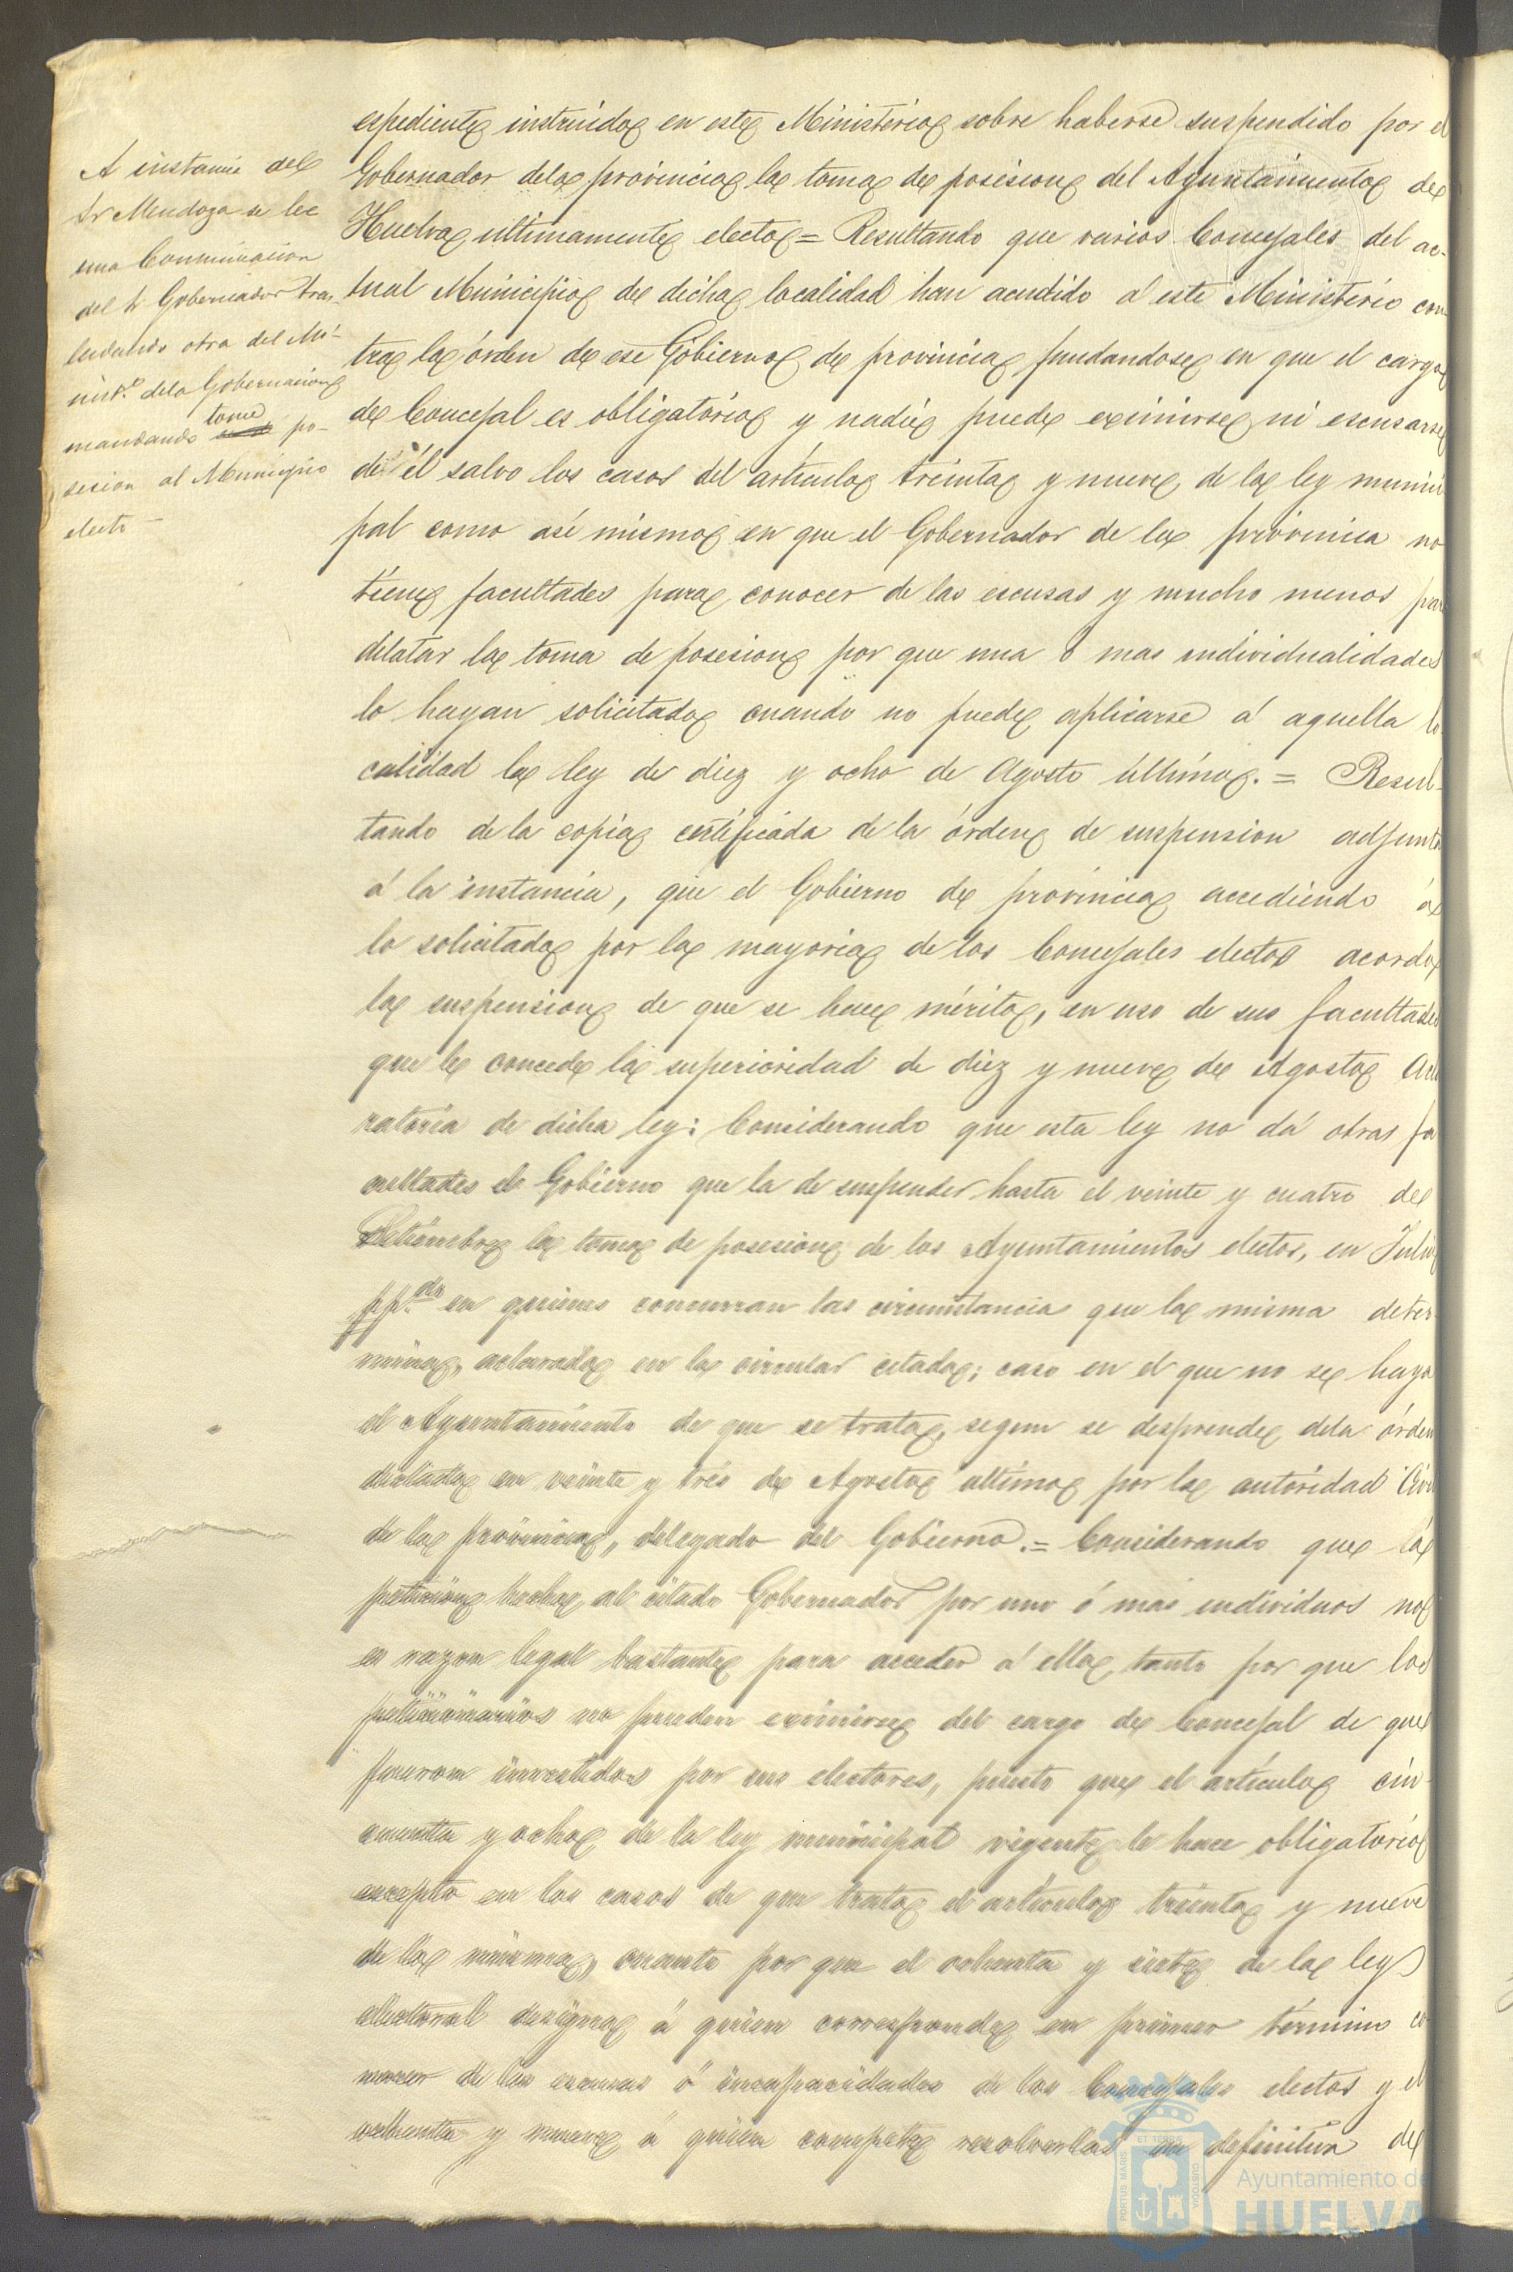 A instancia del
Sr Mendoza se lee
una Comunicacion
del Sr Gobernador tras-
ladando otra del Mi-
nist.º dela Gobernacion
mandando tome po-
sesion al Municipio
electo —
espediente instruido en este Ministerio sobre haberse suspendido por el
Gobernador dela provincia la toma de posesion del Ayuntamiento de
Huelva ultimamente electo = Resultando que varios Concejales del ac-
tual Municipio de dicha localidad han acudido á este Ministerio con
tra la órden de ese Gobierno de provincia fundandose en que el cargo
de Concejal es obligatorio y nadie puede eximirse ni escusarse
de él salvo los casos del artículo treinta y nueve de la ley munici
pal como asi mismo en que el Gobernador de la provincia no
tiene facultades para conocer de las escusas y mucho menos para
dilatar la toma de posesion por que una ó mas individualidades
lo hayan solicitado cuando no puede aplicarse á aquella lo
calidad la ley de diez y ocho de Agosto último. = Resul-
tando de la copia certificada de la órden de suspension adjunta
á la instancia, que el Gobierno de provincia accediendo á
lo solicitado por la mayoria de los Concejales electos acordo
la suspension de que se hace mérito, en uso de sus facultades
que le concede la superioridad de diez y nueve de Agosto acla
ratoria de dicha ley: Considerando que esta ley no dá otras fa
cultades al Gobierno que la de suspender hasta el veinte y cuatro de
Setiembre la toma de posesion de los Ayuntamientos electos, en Julio
pp.do en quienes concurran las circunstancias que la misma deter
mina, aclarada en la circular citada; caso en el que no se haya
el Ayuntamiento de que se trata, segun se desprende dela órden
dictada en veinte y tres de Agosto ultimo por la autoridad Civil
de la provincia, delegado del Gobierno. = Considerando que la
peticion hecha al citado Gobernador por uno ó mas individuos no
es razon legal bastante para acceder á ella, tanto por que los
peticionarios no pueden eximirse del cargo de Concejal de que
fueron investidos por sus electores, puesto que el artículo cin-
cuenta y ocho de la ley municipal vigente le hace obligatorio
excepto en los casos de que trata el artículo treinta y nueve
de la misma, cuanto por que el ochenta y siete de la ley
electoral designa á quien corresponde en primer término co
nocer de las escusas ó incapacidades de los Concejales electos y el
ochenta y nueve á quien compete resolverlas en definitiva de
Ayuntamiento de
HUELVA
PORTUS MARIS
ET TERRE
CUSTODIA